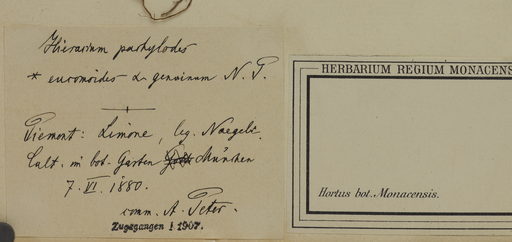 Hieracium pachylodes
* euromoides α genuinum N. P.
Piemont: Limone, leg. Naegeli.
Cult. in bot. Garten München
7. VI. 1880.
comm. A. Peter.
Zugegangen ! 1907.
HERBARIUM REGIUM MONACENS
Hortus bot. Monacensis.